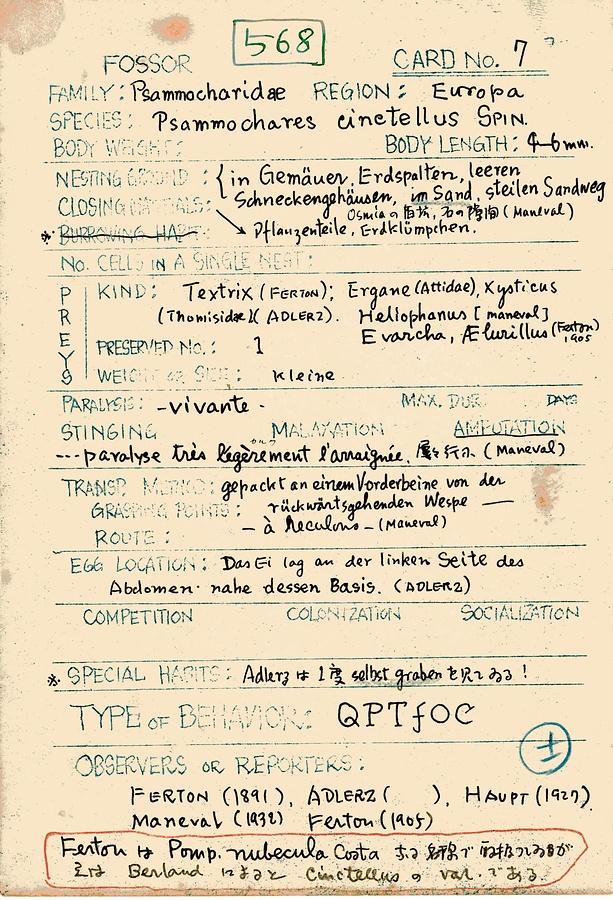 568
FOSSOR CARD No. 7
FAMILY: Psammocharidae REGION: Europa
SPECIES: Psammochares cinctellus SPIN.
BODY WEIGHT: BODY LENGTH: 4-6mm.
NESTING GROUND : { in Gemäuer, Erdspalten, leeren
Schneckengehäusen, im Sand, steilen Sandweg
CLOSING MATERIALS:
Osmia の (Maneval)
※ BURROWING HABIT: Pflanzenteile, Erdklümpchen.
No. CELLS IN A SINGLE NEST:
PREYS
KIND: Textrix (FERTON); Ergane (Attidae), Xysticus
(Thomisidae)(ADLERZ). Heliophanus [maneval]
Evarcha, Ælurillus (Ferton) 1905
PRESERVED No.: 1
WEIGHT OR SIZE: kleine
PARALYSIS: -vivante- MAX. DUR. DAYS
STINGING MALAXATION AMPUTATION
---paralyse très légèrement l'araignée. 屡々行ふ (Maneval)
TRANSP. METHOD: gepackt an einem Vorderbeine von der
GRASPING POINTS: rückwärtsgehenden Wespe —
— à reculons — (Maneval)
ROUTE:
EGG LOCATION: Das Ei lag an der linken Seite des
Abdomen nahe dessen Basis. (ADLERZ)
COMPETITION COLONIZATION SOCIALIZATION
※ SPECIAL HABITS: Adlerz は 1度 selbst graben を見てゐる!
TYPE OF BEHAVIOR: QPTfOC
±
OBSERVERS OR REPORTERS:
FERTON (1891), ADLERZ ( ), HAUPT (1927)
Maneval (1932) Ferton (1905)
Ferton は Pomp. nubecula Costa なる 名称で
Berland によると cinctellus の var. である.